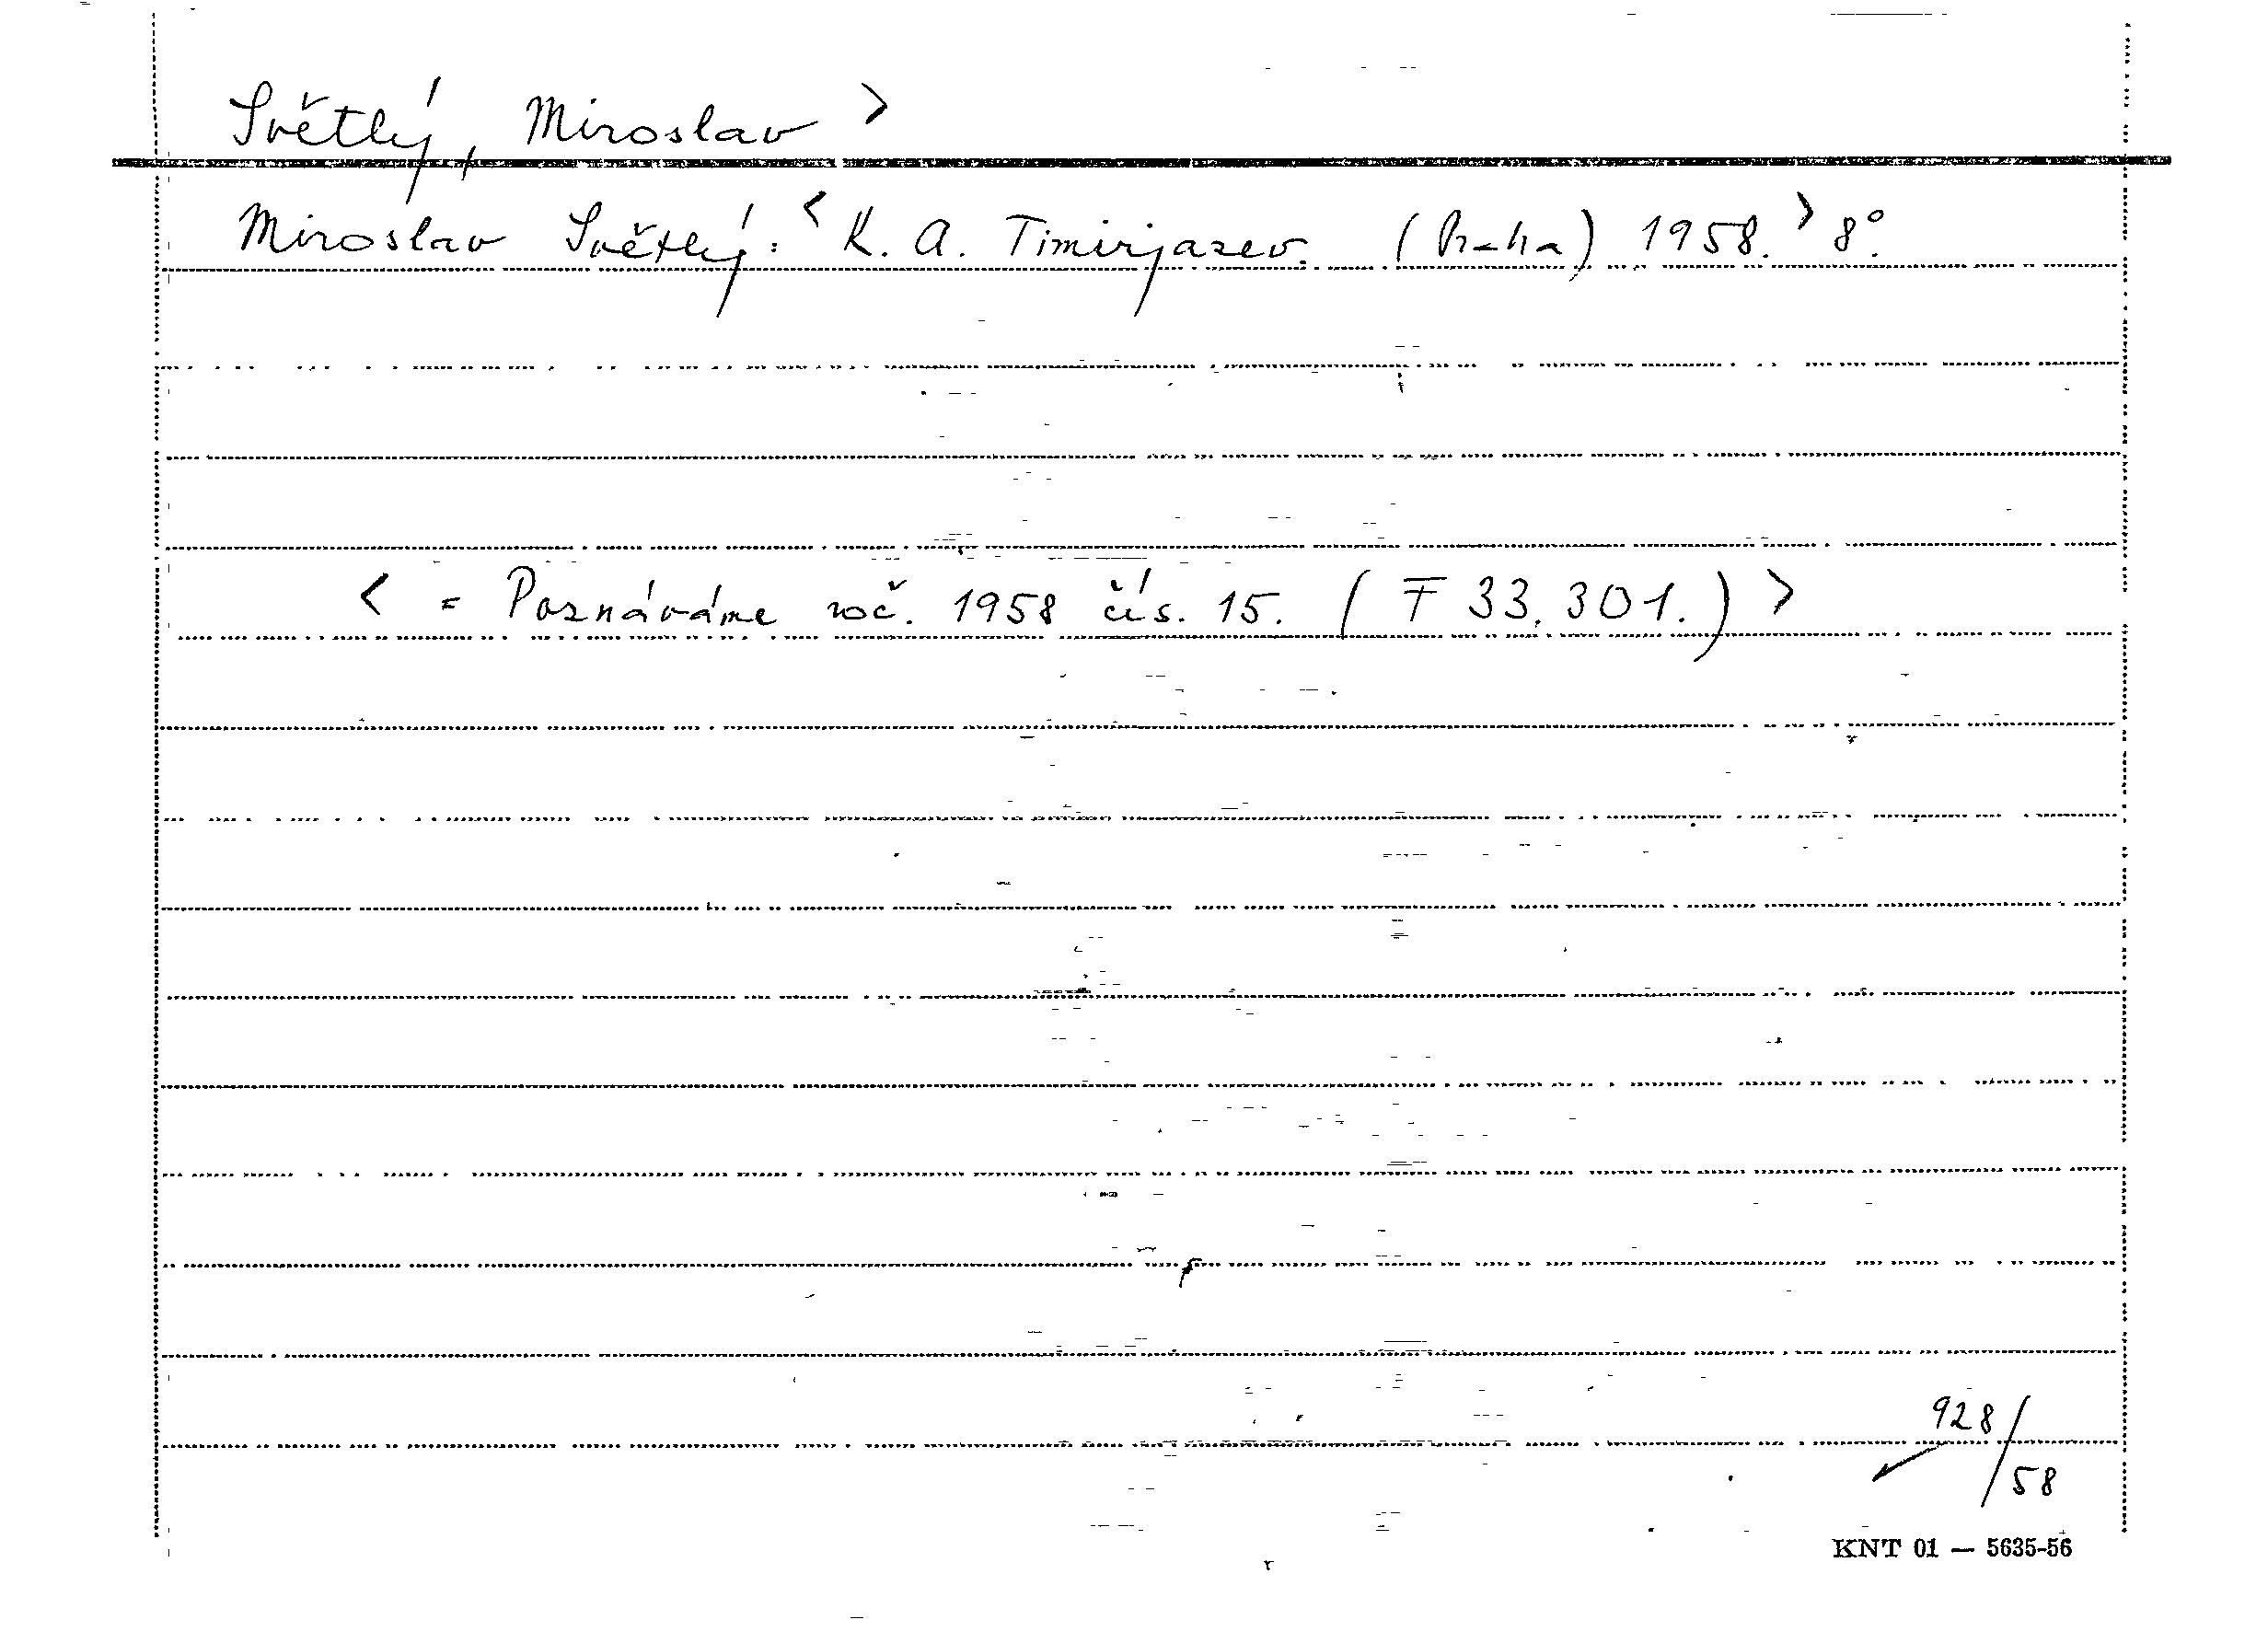 Světlý, Miroslav >
Miroslav Světlý: < K. A. Timirjazev. (Praha) 1958. > 8°.
< = Poznáváme roč. 1958 čís. 15. ( F 33.301. ) >
928/58
KNT 01 — 5635-56